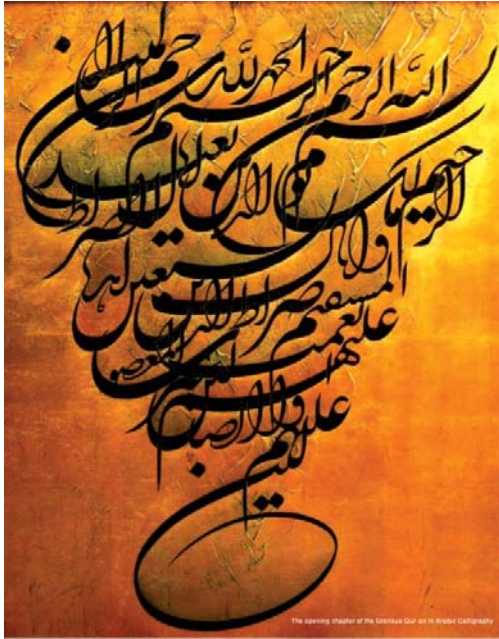 بسم الله الرحمن الرحيم
الحمد لله رب العالمين
الرحمن الرحيم
مالك يوم الدين
اياك نعبد و اياك نستعين
اهدنا الصراط المستقيم
صراط الذين انعمت عليهم
غير المغضوب عليهم ولا الضالين
The opening chapter of the Glorious Qur an in Arabic Calligraphy